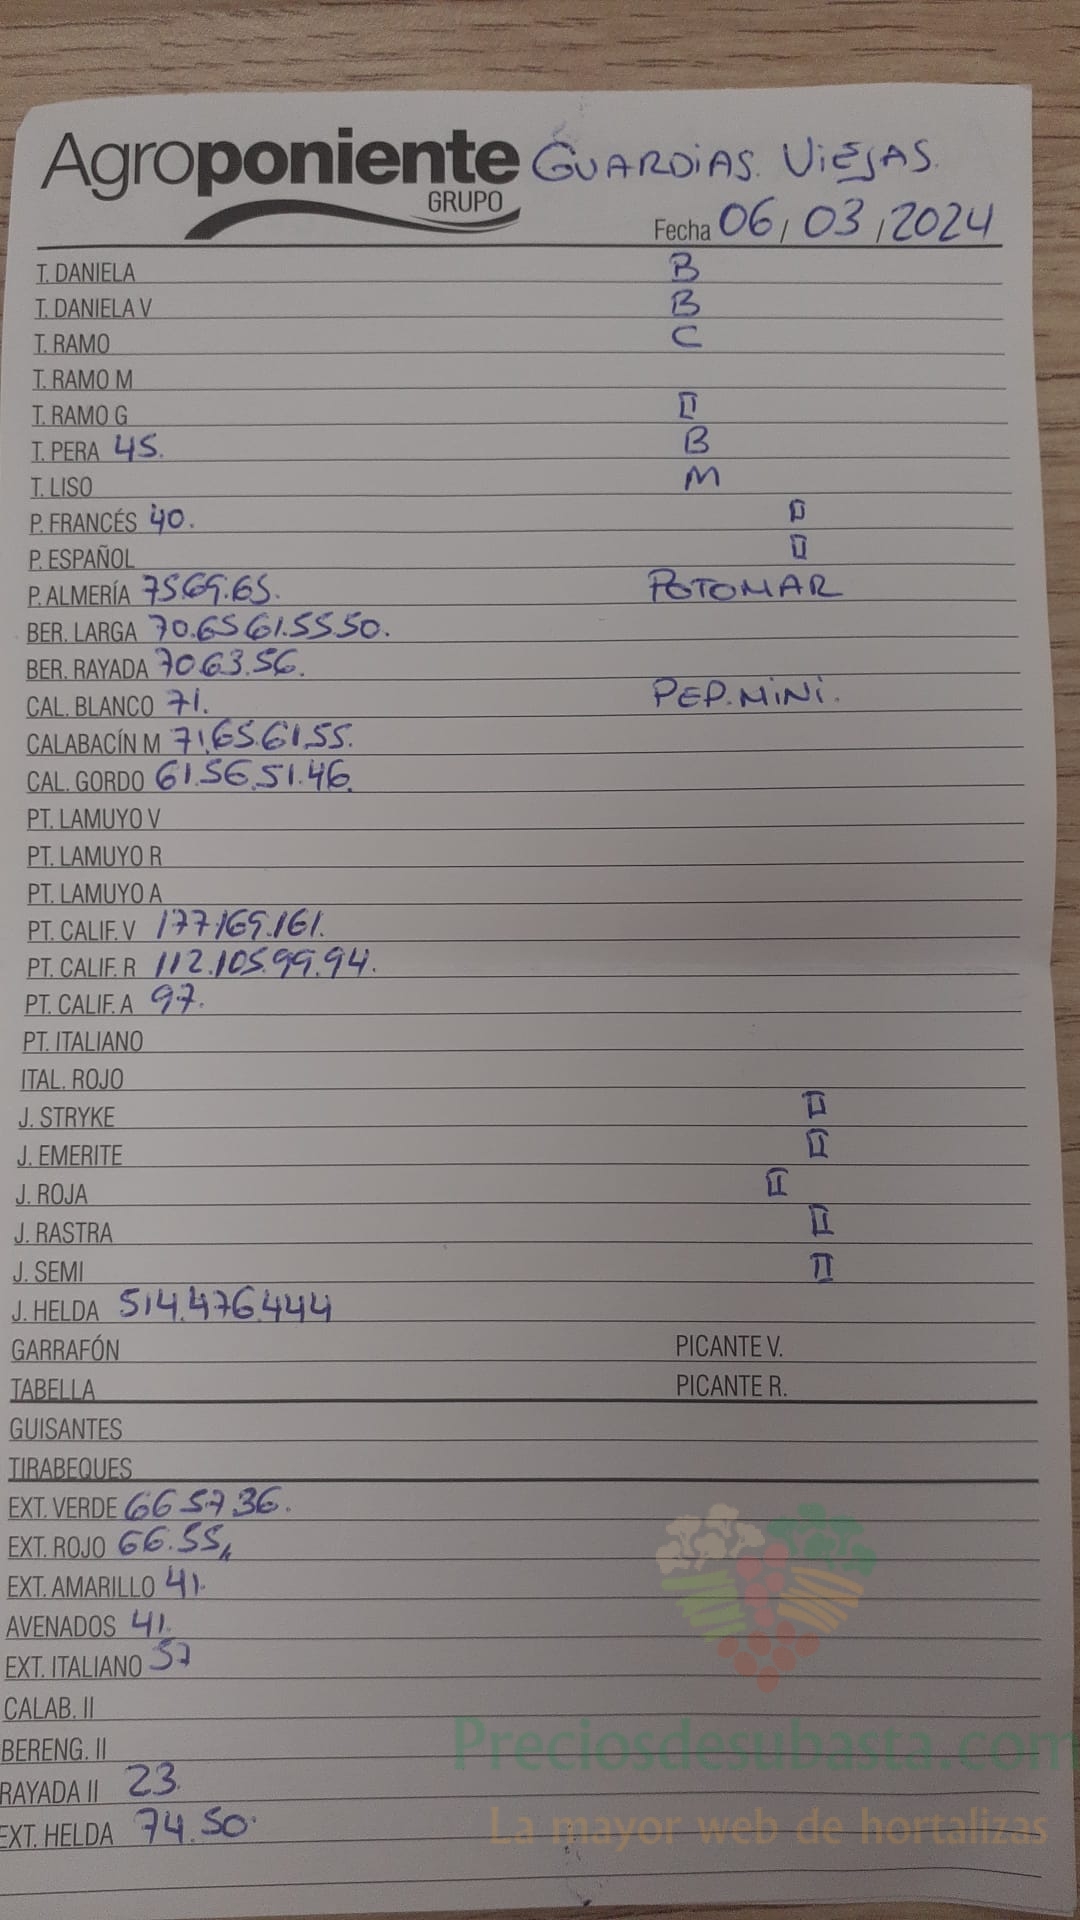 Agroponiente GUARDIAS. VIEJAS.
GRUPO
Fecha 06/03/2024
T. DANIELA B
T. DANIELA V B
T. RAMO C
T. RAMO M
T. RAMO G II
T. PERA 45. B
T. LISO M
P. FRANCÉS 40. II
P. ESPAÑOL II
P. ALMERÍA 75.69.65. POTOMAR
BER. LARGA 70.65.61.55.50.
BER. RAYADA 70.63.56.
CAL. BLANCO 71. PEP. MINI.
CALABACÍN M 71.65.61.55.
CAL. GORDO 61.56.51.46.
PT. LAMUYO V
PT. LAMUYO R
PT. LAMUYO A
PT. CALIF. V 177.169.161.
PT. CALIF. R 112.105.99.94.
PT. CALIF. A 97.
PT. ITALIANO
ITAL. ROJO
J. STRYKE II
J. EMERITE II
J. ROJA II
J. RASTRA II
J. SEMI II
J. HELDA 514.476.444
GARRAFÓN PICANTE V.
TABELLA PICANTE R.
GUISANTES
TIRABEQUES
EXT. VERDE 66.57.36.
EXT. ROJO 66.55.
EXT. AMARILLO 41.
AVENADOS 41.
EXT. ITALIANO 57
CALAB. II
BERENG. II
RAYADA II 23.
EXT. HELDA 74.50.
Preciosdesubasta.com
La mayor web de hortalizas